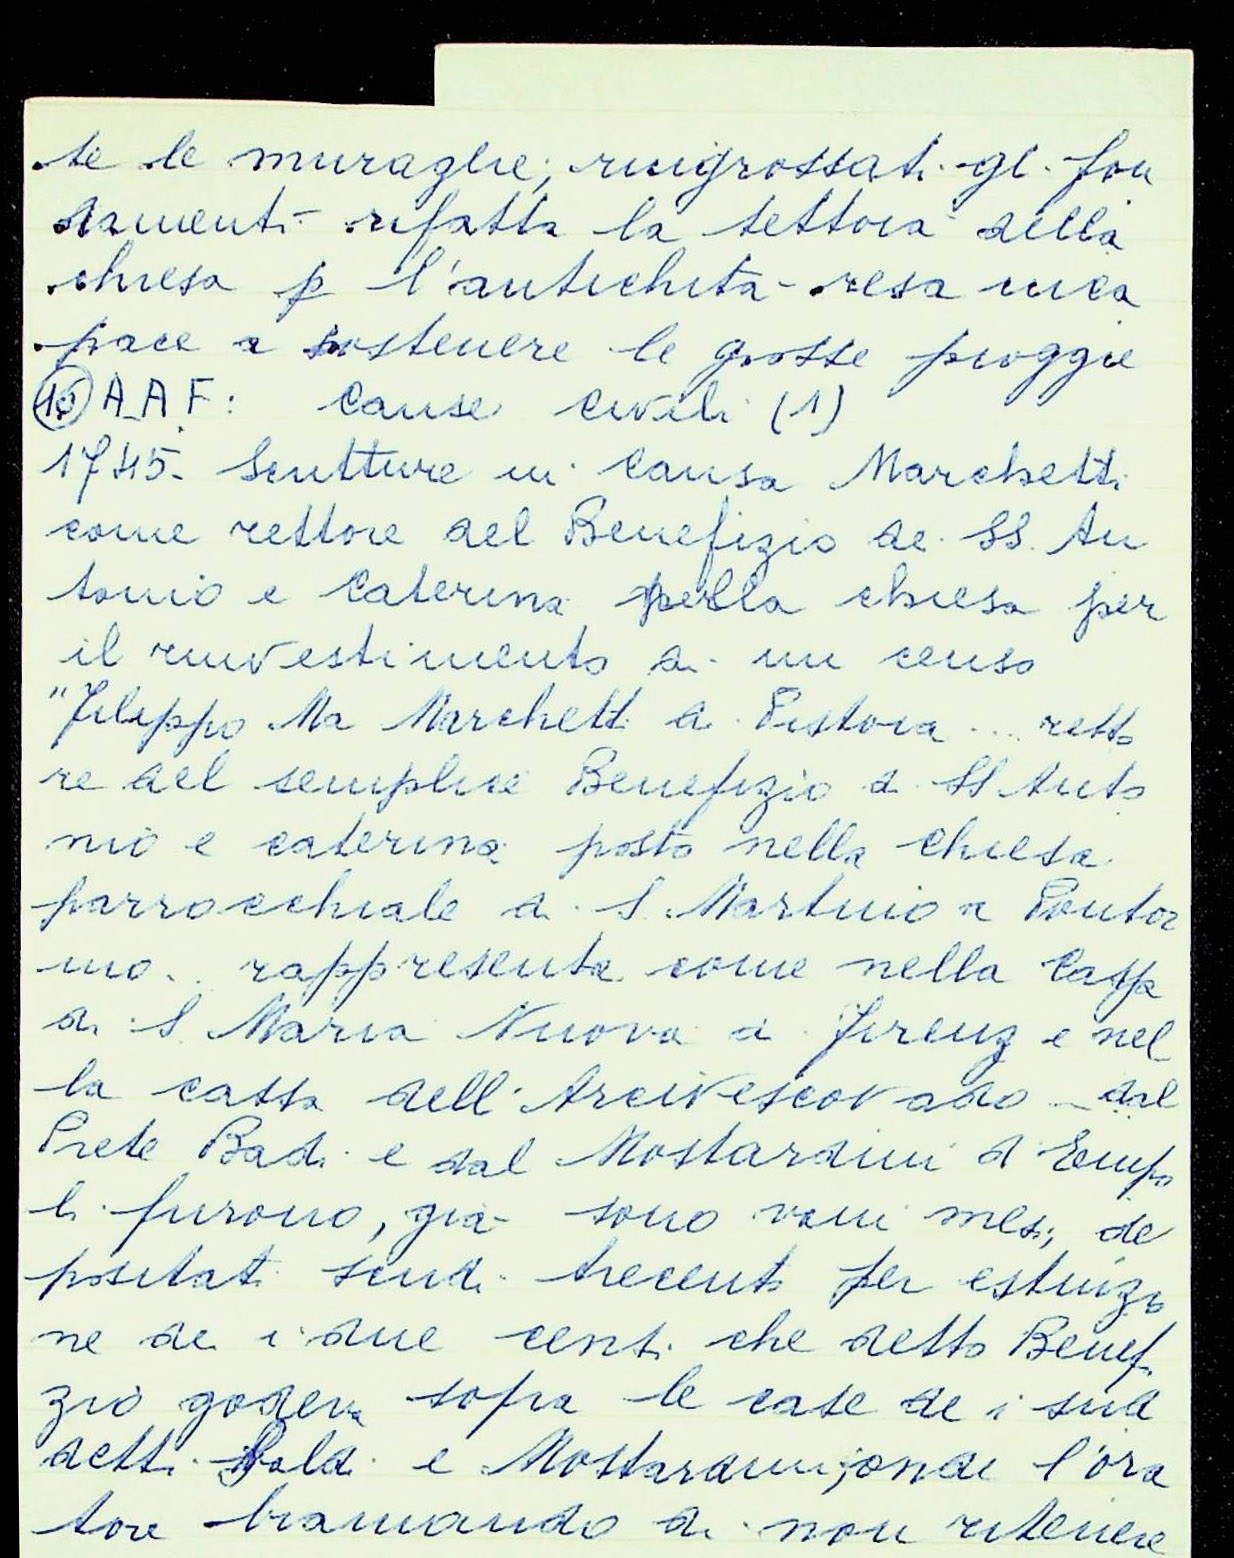 te le muraglie, ringrossati gl. fon
damenti - rifatta la tettoia della
chiesa p l'antichità - resa inca
pace a sostenere le grosse pioggie
(15) A A F: Cause civili (1)
1745. Scritture in causa Marchetti
come rettore del Benefizio de SS. An
tonio e Caterina nella chiesa per
il rinvestimento di un censo
"Filippo Ma Marchetti di Pistoia ... retto
re del semplice Benefizio di SS Anto
nio e Caterina posto nella Chiesa
parrocchiale di S. Martino a Pontor
mo.. rappresenta come nella Cassa
di S. Maria Nuova di Firenz e nel
la cassa dell'Arcivescovado - dal
Prete Badi e dal Mostardini d'Empo
li furono, già sono varii mesi, de
positati scudi trecento per estinzio
ne de i due censi che detto Benef.
zio godeva sopra le case de i sud
detti e Mostardini, onde l'ora
tore bramando di non ritenere